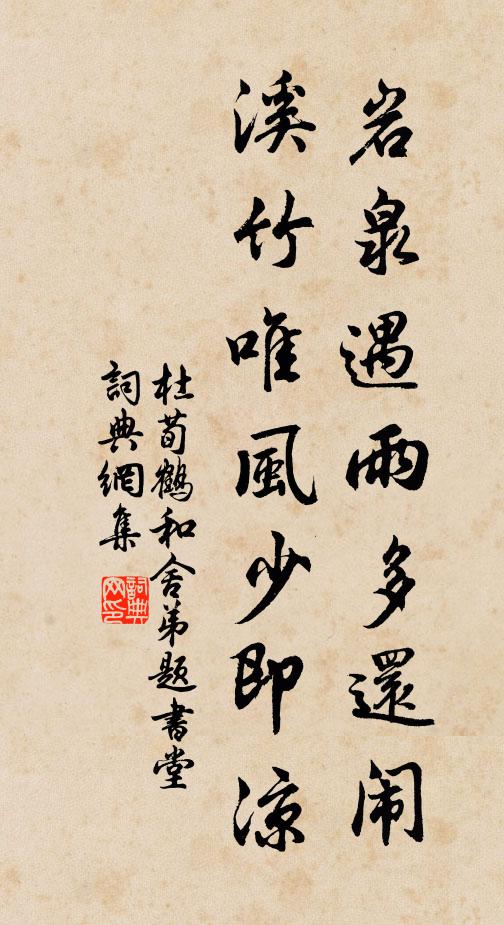 岩泉遇雨多還闹
溪竹唯風少即涼
杜荀鶴和舍弟题書堂
詞典網集
詞典網印